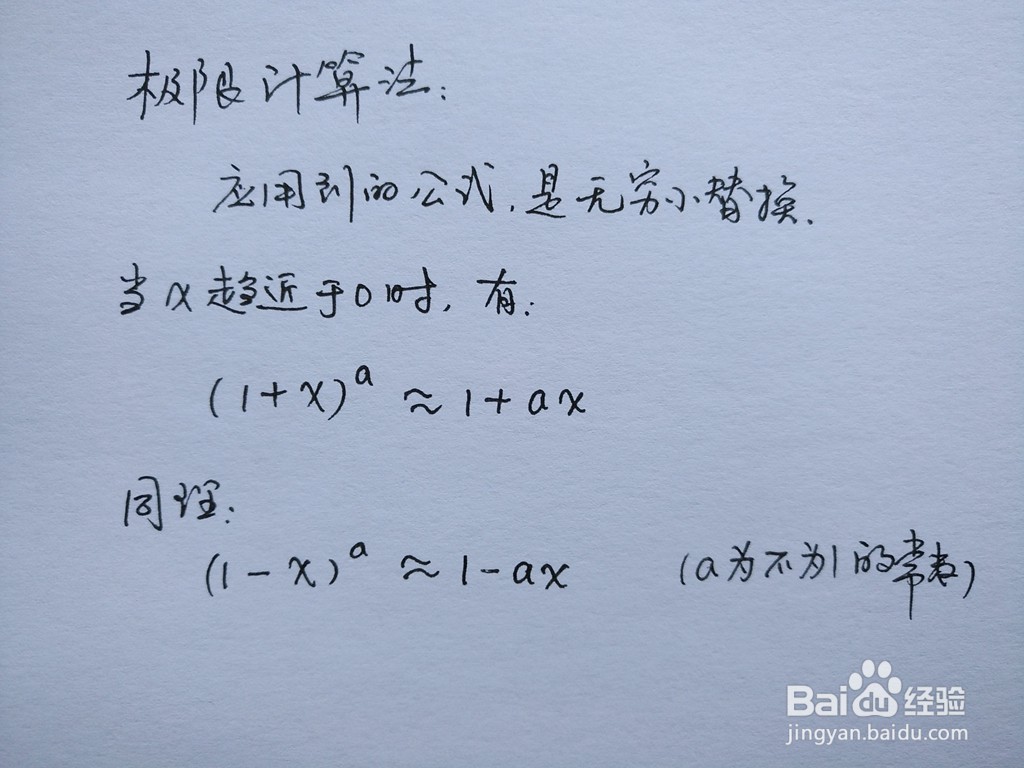 极限计算法:
应用到的公式,是无穷小替换.
当x趋近于0时,有:
(1+x)^a ≈ 1+ax
同理:
(1-x)^a ≈ 1-ax (a为不为1的常数)
Bai du 经验
jingyan.baidu.com